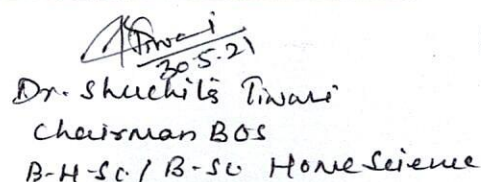 Tiwari
30.5.21
Dr. Shuchita Tiwari
Chairman BOS
B-H-Sc. / B-Sc Home Science